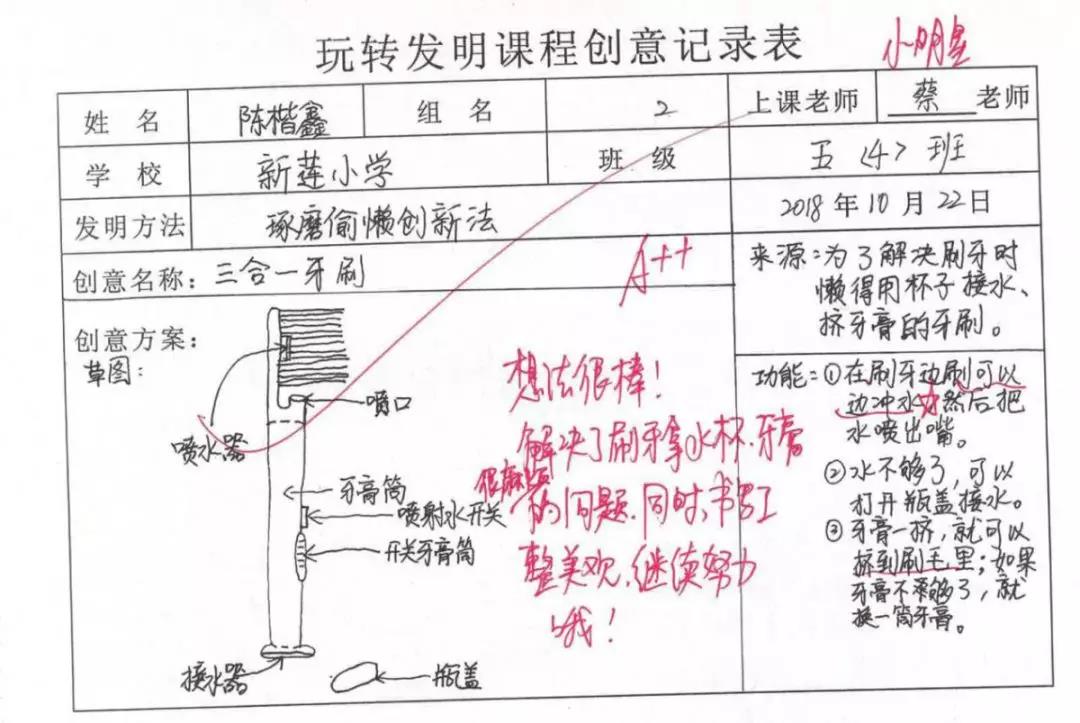 玩转发明课程创意记录表
小明星
姓 名 陈楷鑫 组 名 2 上课老师 蔡 老师
学 校 新莲小学 班 级 五〈4〉班
发明方法 琢磨偷懒创新法 2018年10月22日
创意名称：三合一牙刷
A++
来源：为了解决刷牙时
懒得用杯子接水、
挤牙膏的牙刷。
创意方案：
草图：
喷口
喷水器
牙膏筒
喷射水开关
开关牙膏筒
接水器
瓶盖
想法很棒！
解决了刷牙拿水杯、牙膏
很麻烦
的问题.同时,书写工
整美观.继续努力
哦！
功能：①在刷牙边刷可以
边冲水，然后把
水喷出嘴。
②水不够了，可以
打开瓶盖接水。
③牙膏一挤，就可以
挤到刷毛里；如果
牙膏不够了，就
换一筒牙膏。